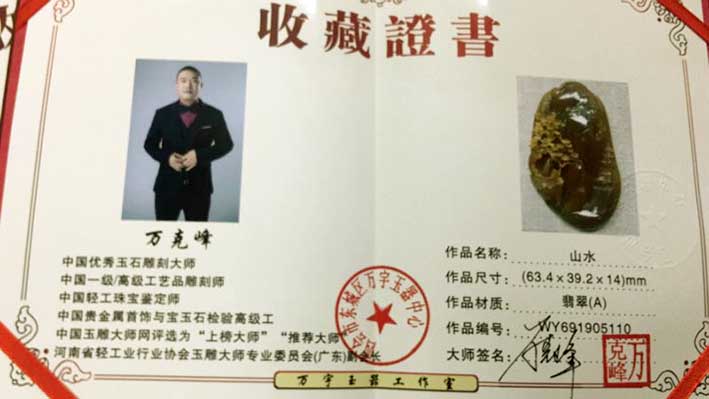 收藏證書
万克峰
中国优秀玉石雕刻大师
中国一级/高级工艺品雕刻师
中国轻工珠宝鉴定师
中国贵金属首饰与宝玉石检验高级工
中国玉雕大师网评选为“上榜大师”“推荐大师”
河南省轻工业行业协会玉雕大师专业委员会(广东)副会长
作品名称: 山水
作品尺寸: (63.4×39.2×14)mm
作品材质: 翡翠(A)
作品编号: WY691905110
大师签名:
万克峰
会市东城区万字玉器中心
万字玉器工作室